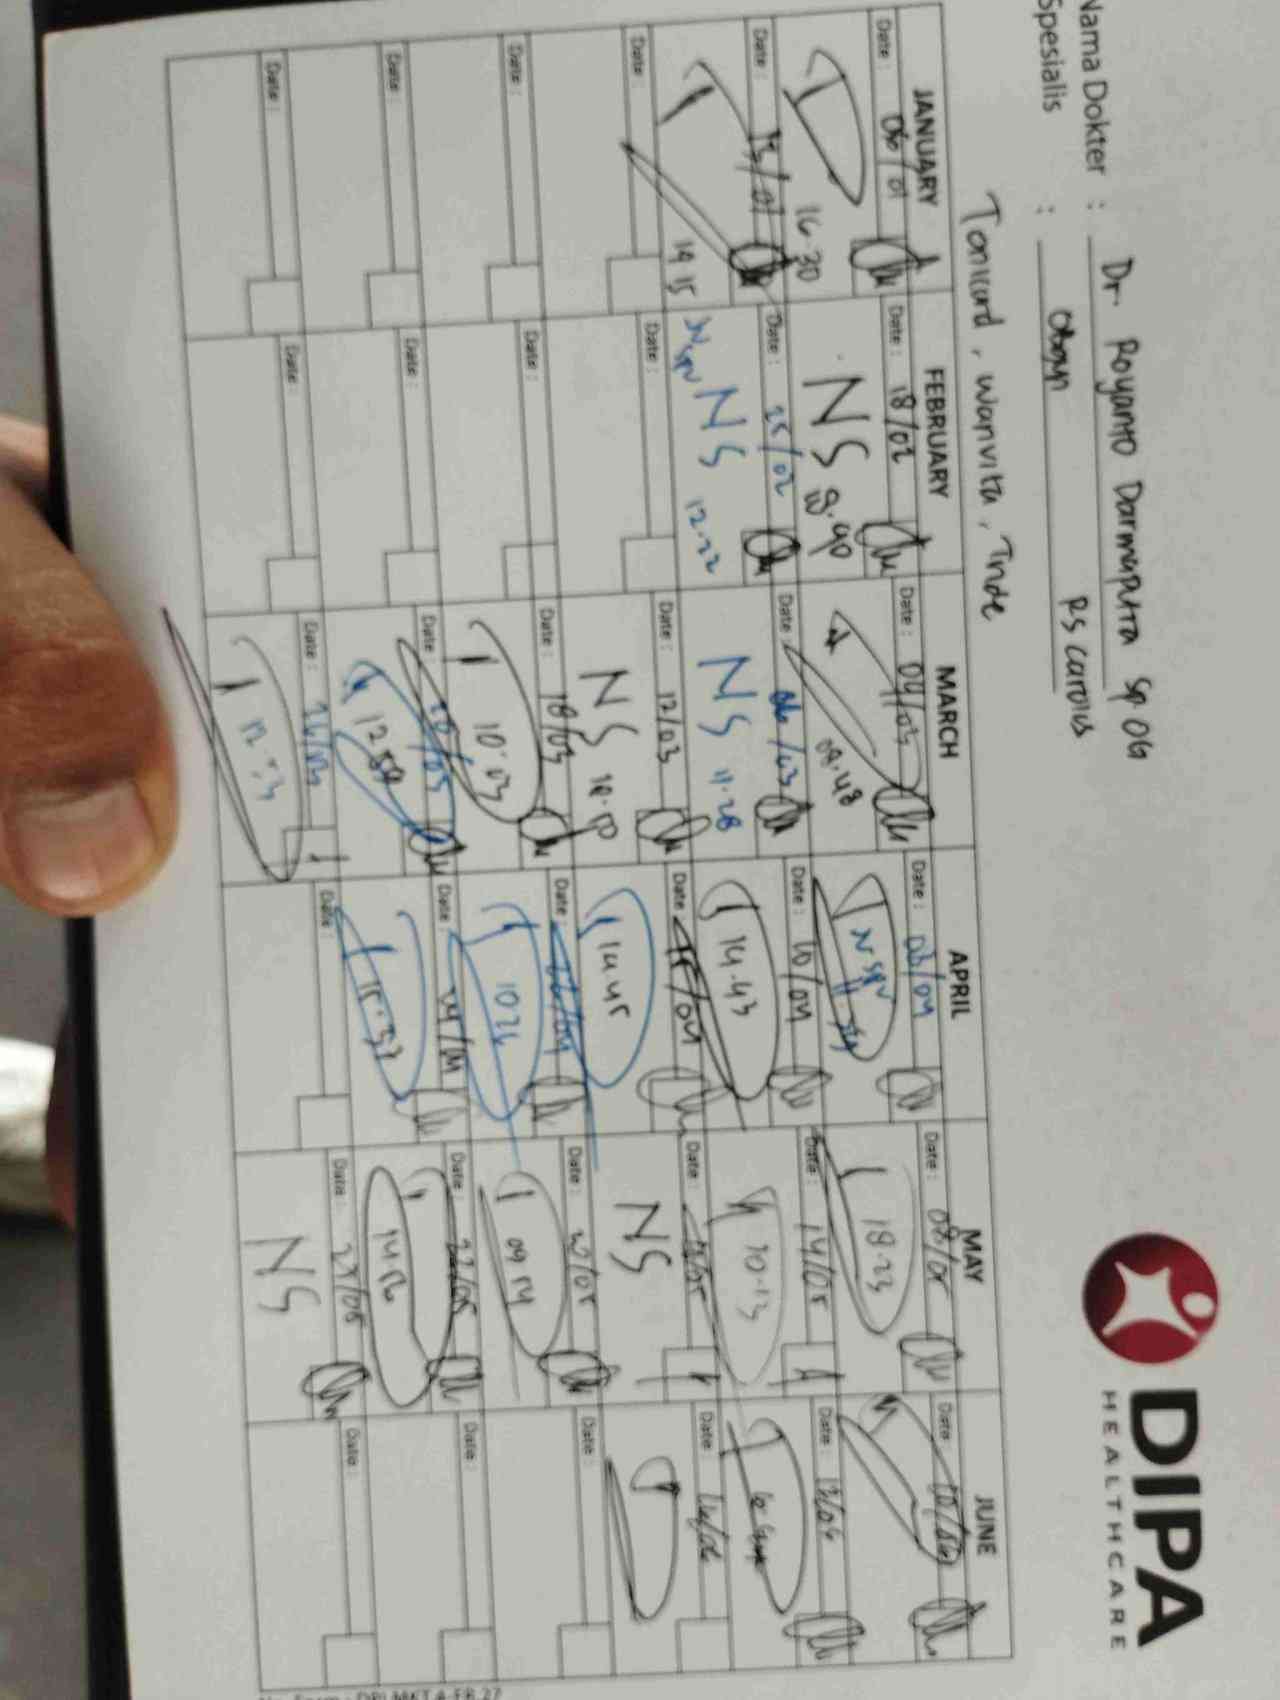 DIPA
HEALTHCARE
Nama Dokter : Dr. Royanto Darmaputra Sp OG
Spesialis : Obgyn RS Carolus
Tonicard, Wanvita, Tride
JANUARY FEBRUARY MARCH APRIL MAY JUNE
Date : 06/01 Date : 18/02 Date : 04/03 Date : 03/04 Date : 08/05 Date :
16.30 NS 09.48 N SPV 18.23
Date : 13/01 Date : 25/02 Date : 06/03 Date : 10/04 Date : 14/05 Date : 13/06
14 15 N SPV NS 12.22 NS 11.28 14.43 10.13
Date : Date : Date : 12/03 Date : 15/04 Date : Date :
NS 14 45 NS
Date : Date : Date : 18/03 Date : 22/04 Date : 20/05 Date :
10.03 10 26 09 54
Date : Date : Date : Date : 24/04 Date : 22/05 Date :
12 59 15.37 14.52
Date : Date : Date : 26/03 Date : Date : 27/05 Date :
12.53 NS